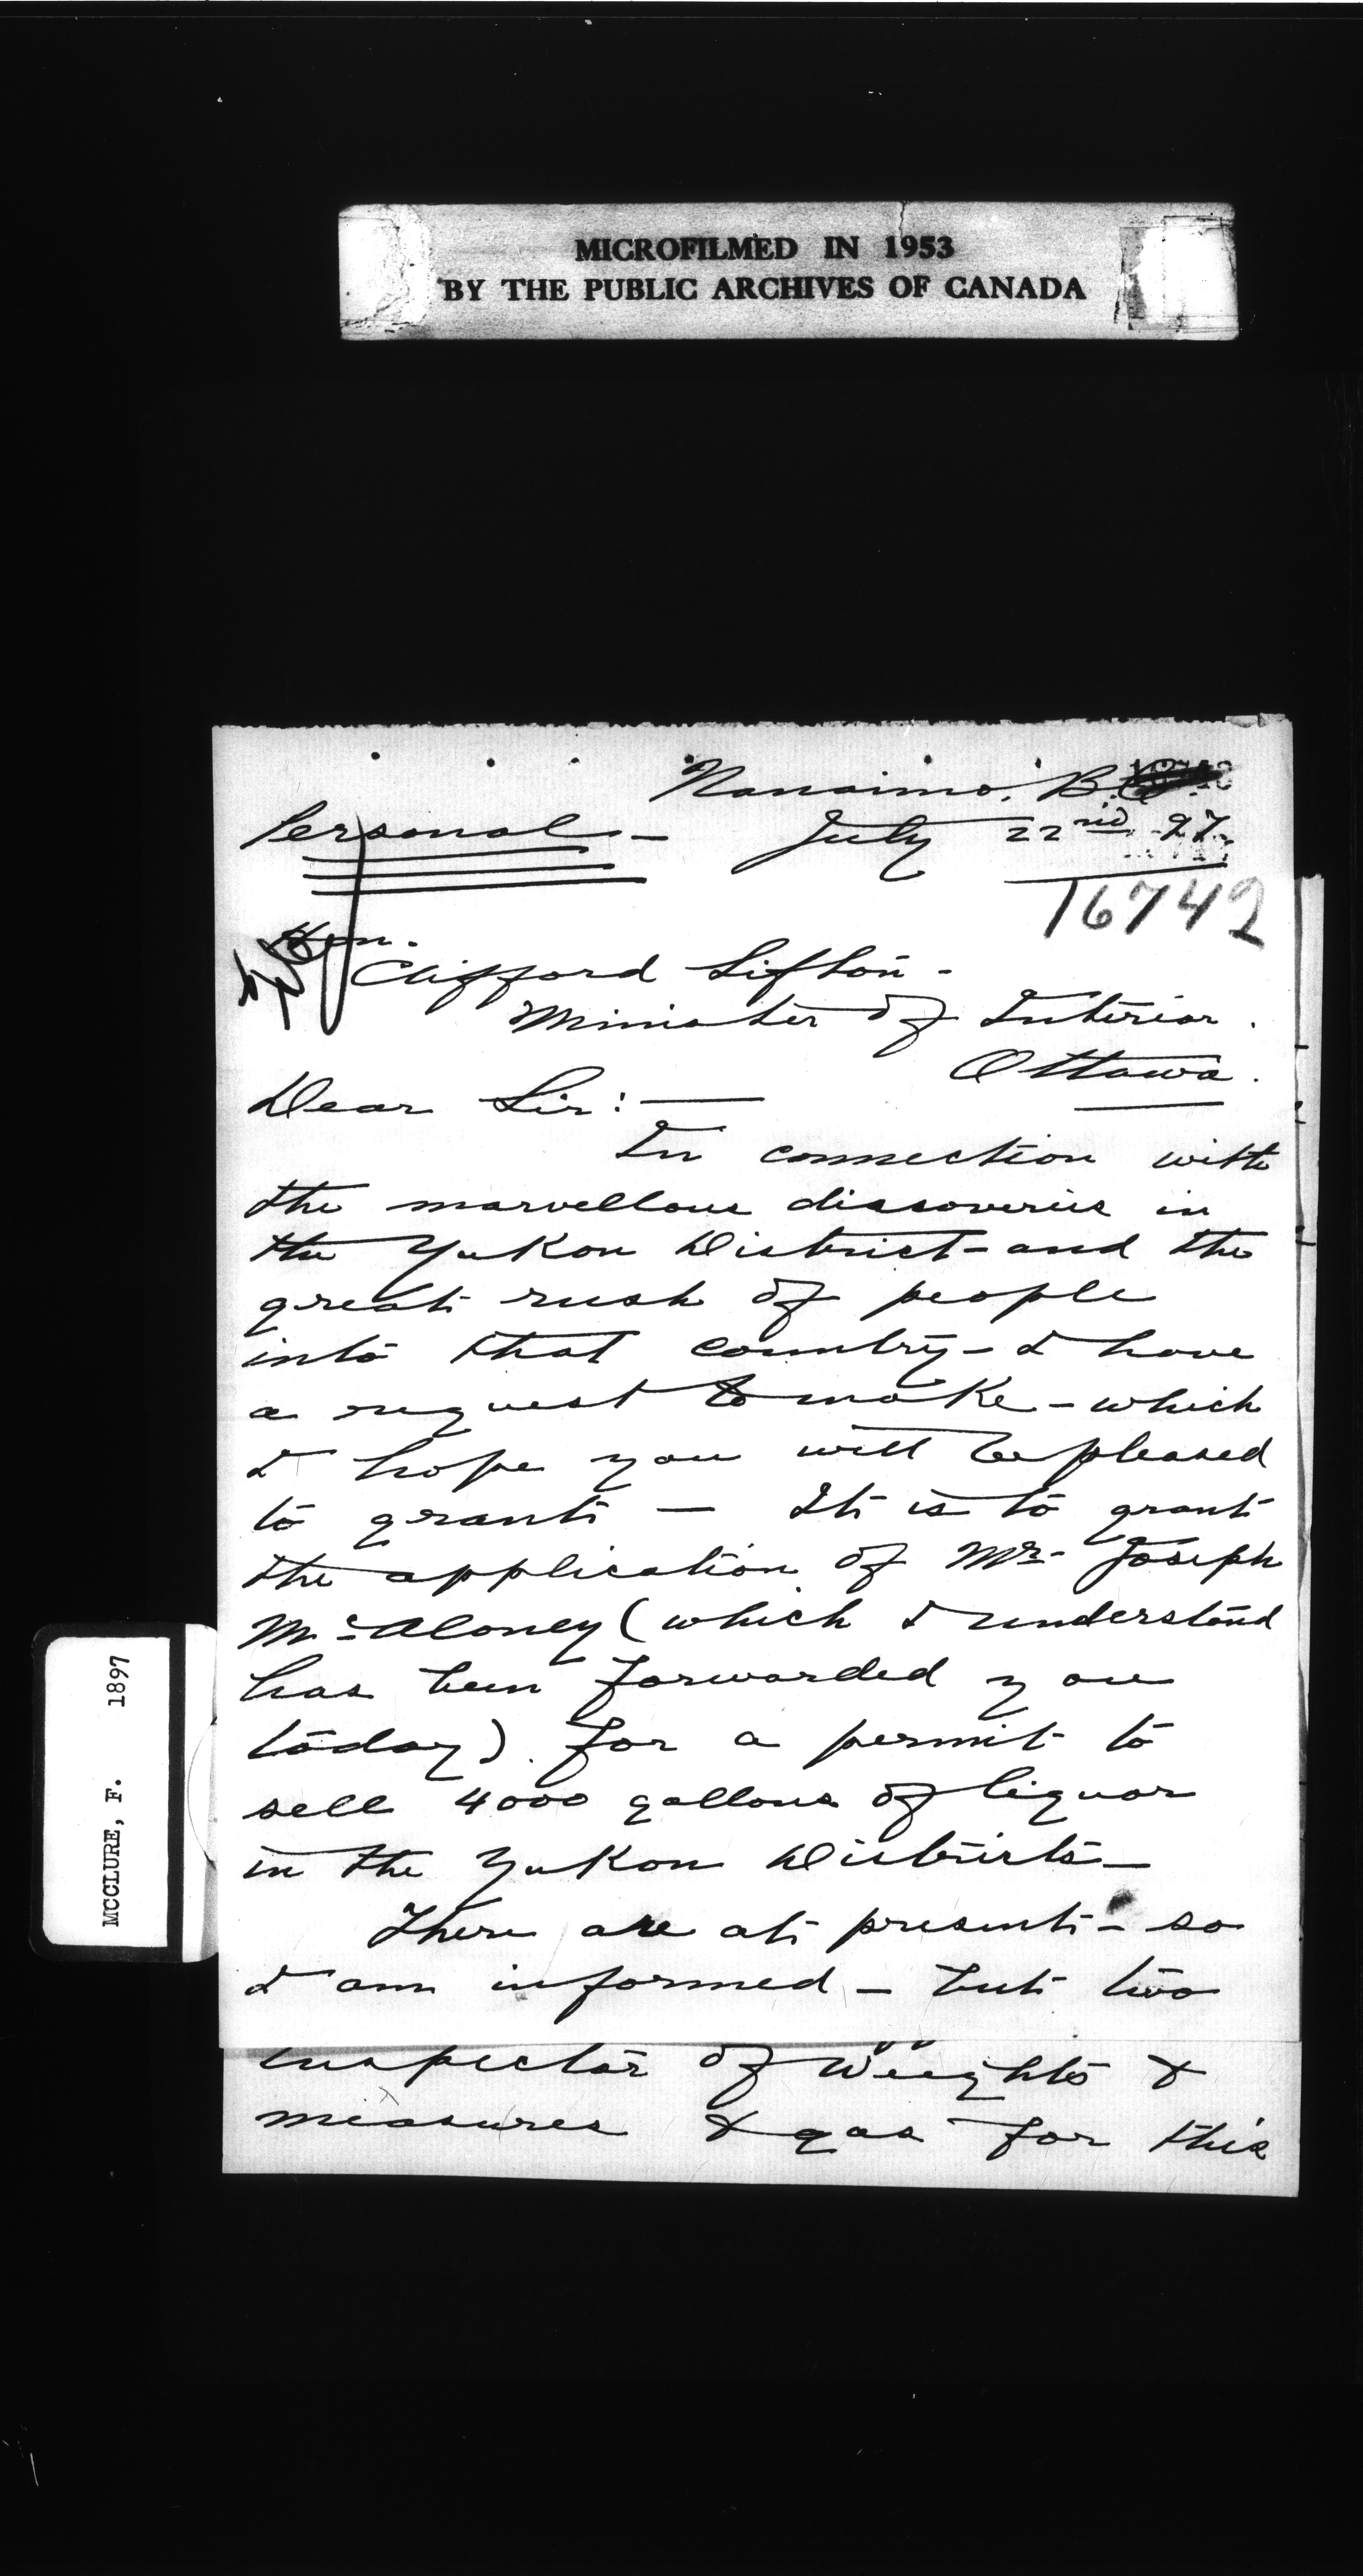 MICROFILMED IN 1953
BY THE PUBLIC ARCHIVES OF CANADA
Nanaimo. B.C.
Personal — July 22nd 97.
16742
Hon.
Clifford Sifton -
Minister of Interior.
Ottawa.
Dear Sir: —
In connection with
the marvellous discoveries in
the Yukon District - and the
great rush of people
into that country - I have
a request to make - which
I hope you will be pleased
to grant — It is to grant
the application of Mr. Joseph
McAloney (which I understand
has been forwarded you
today). for a permit to
sell 4000 gallons of liquor
in the Yukon Districts —
There are at present - so
I am informed - but two
inspector of Weights &
measures & gas for this
MCCLURE, F. 1897